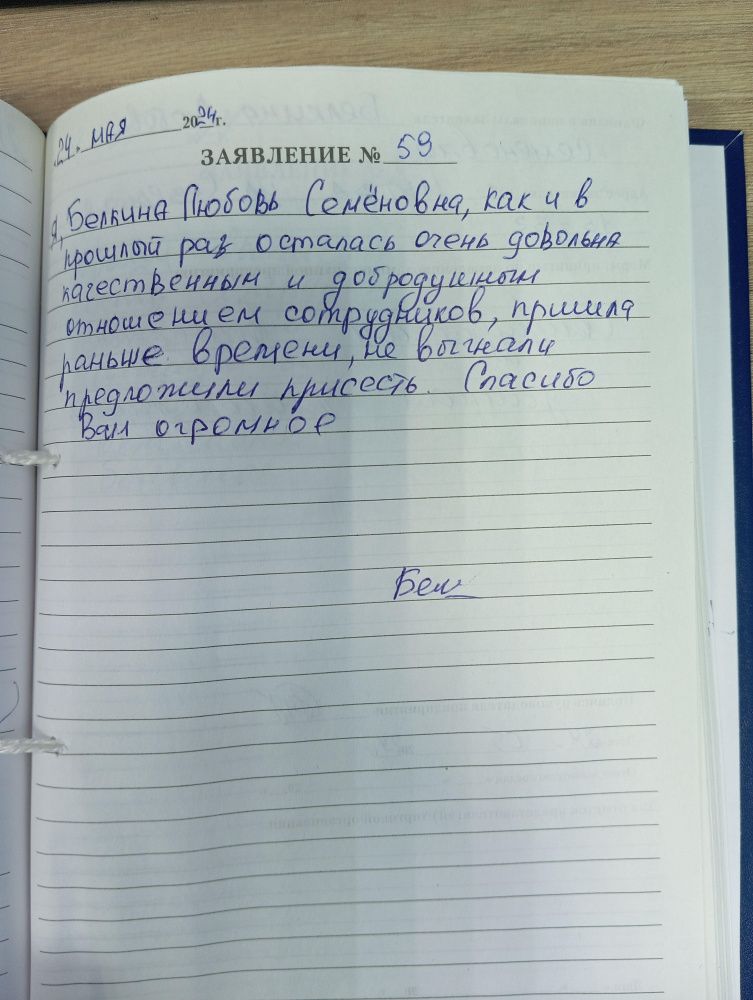 24. мая 2024г.
ЗАЯВЛЕНИЕ № 59
Я, Белкина Любовь Семёновна, как и в
прошлый раз осталась очень довольна
качественным и добродушным
отношением сотрудников, пришла
раньше времени, не выгнали
предложили присесть. Спасибо
Вам огромное
Бел